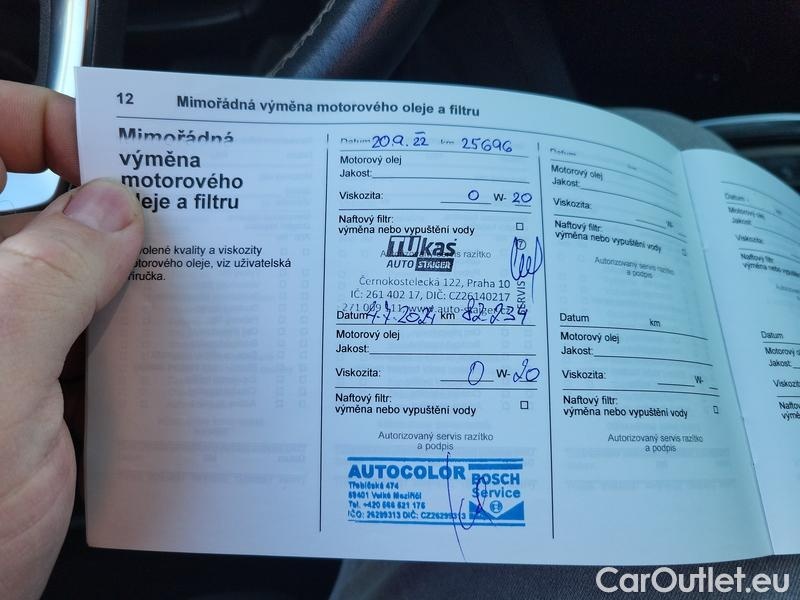 12 Mimořádná výměna motorového oleje a filtru
Mimořádná
výměna
motorového
oleje a filtru
kvality a viskozity
motorového oleje, viz uživatelská
příručka.
Datum 20.9.22 km 25696
Motorový olej
Jakost:
Viskozita: 0 W- 20
Naftový filtr:
výměna nebo vypuštění vody
Autorizovaný servis razítko
TUkas
AUTO STAIGER
SERVIS
Černokostelecká 122, Praha 10
IČ: 261 402 17, DIČ: CZ26140217
271 009 111 www.auto-staiger.cz
Datum 2024 km 82234
Motorový olej
Jakost:
Viskozita: 0 W- 20
Naftový filtr:
výměna nebo vypuštění vody
Autorizovaný servis razítko
a podpis
AUTOCOLOR
BOSCH
Service
Třebíčská 474
59401 Velké Meziříčí
Tel. +420 566 521 176
IČO: 26299313 DIČ: CZ26299313
Datum
Motorový olej
Jakost:
Viskozita: W-
Naftový filtr:
výměna nebo vypuštění vody
Autorizovaný servis razítko
a podpis
Datum km
Motorový olej
Jakost:
Viskozita: W-
Naftový filtr:
výměna nebo vypuštění vody
Autorizovaný servis razítko
a podpis
Datum
Motorový olej
Jakost:
Viskozita:
Naftový filtr:
výměna nebo
Datum
Jakost:
Viskozita:
Naftový
výměna
CarOutlet.eu